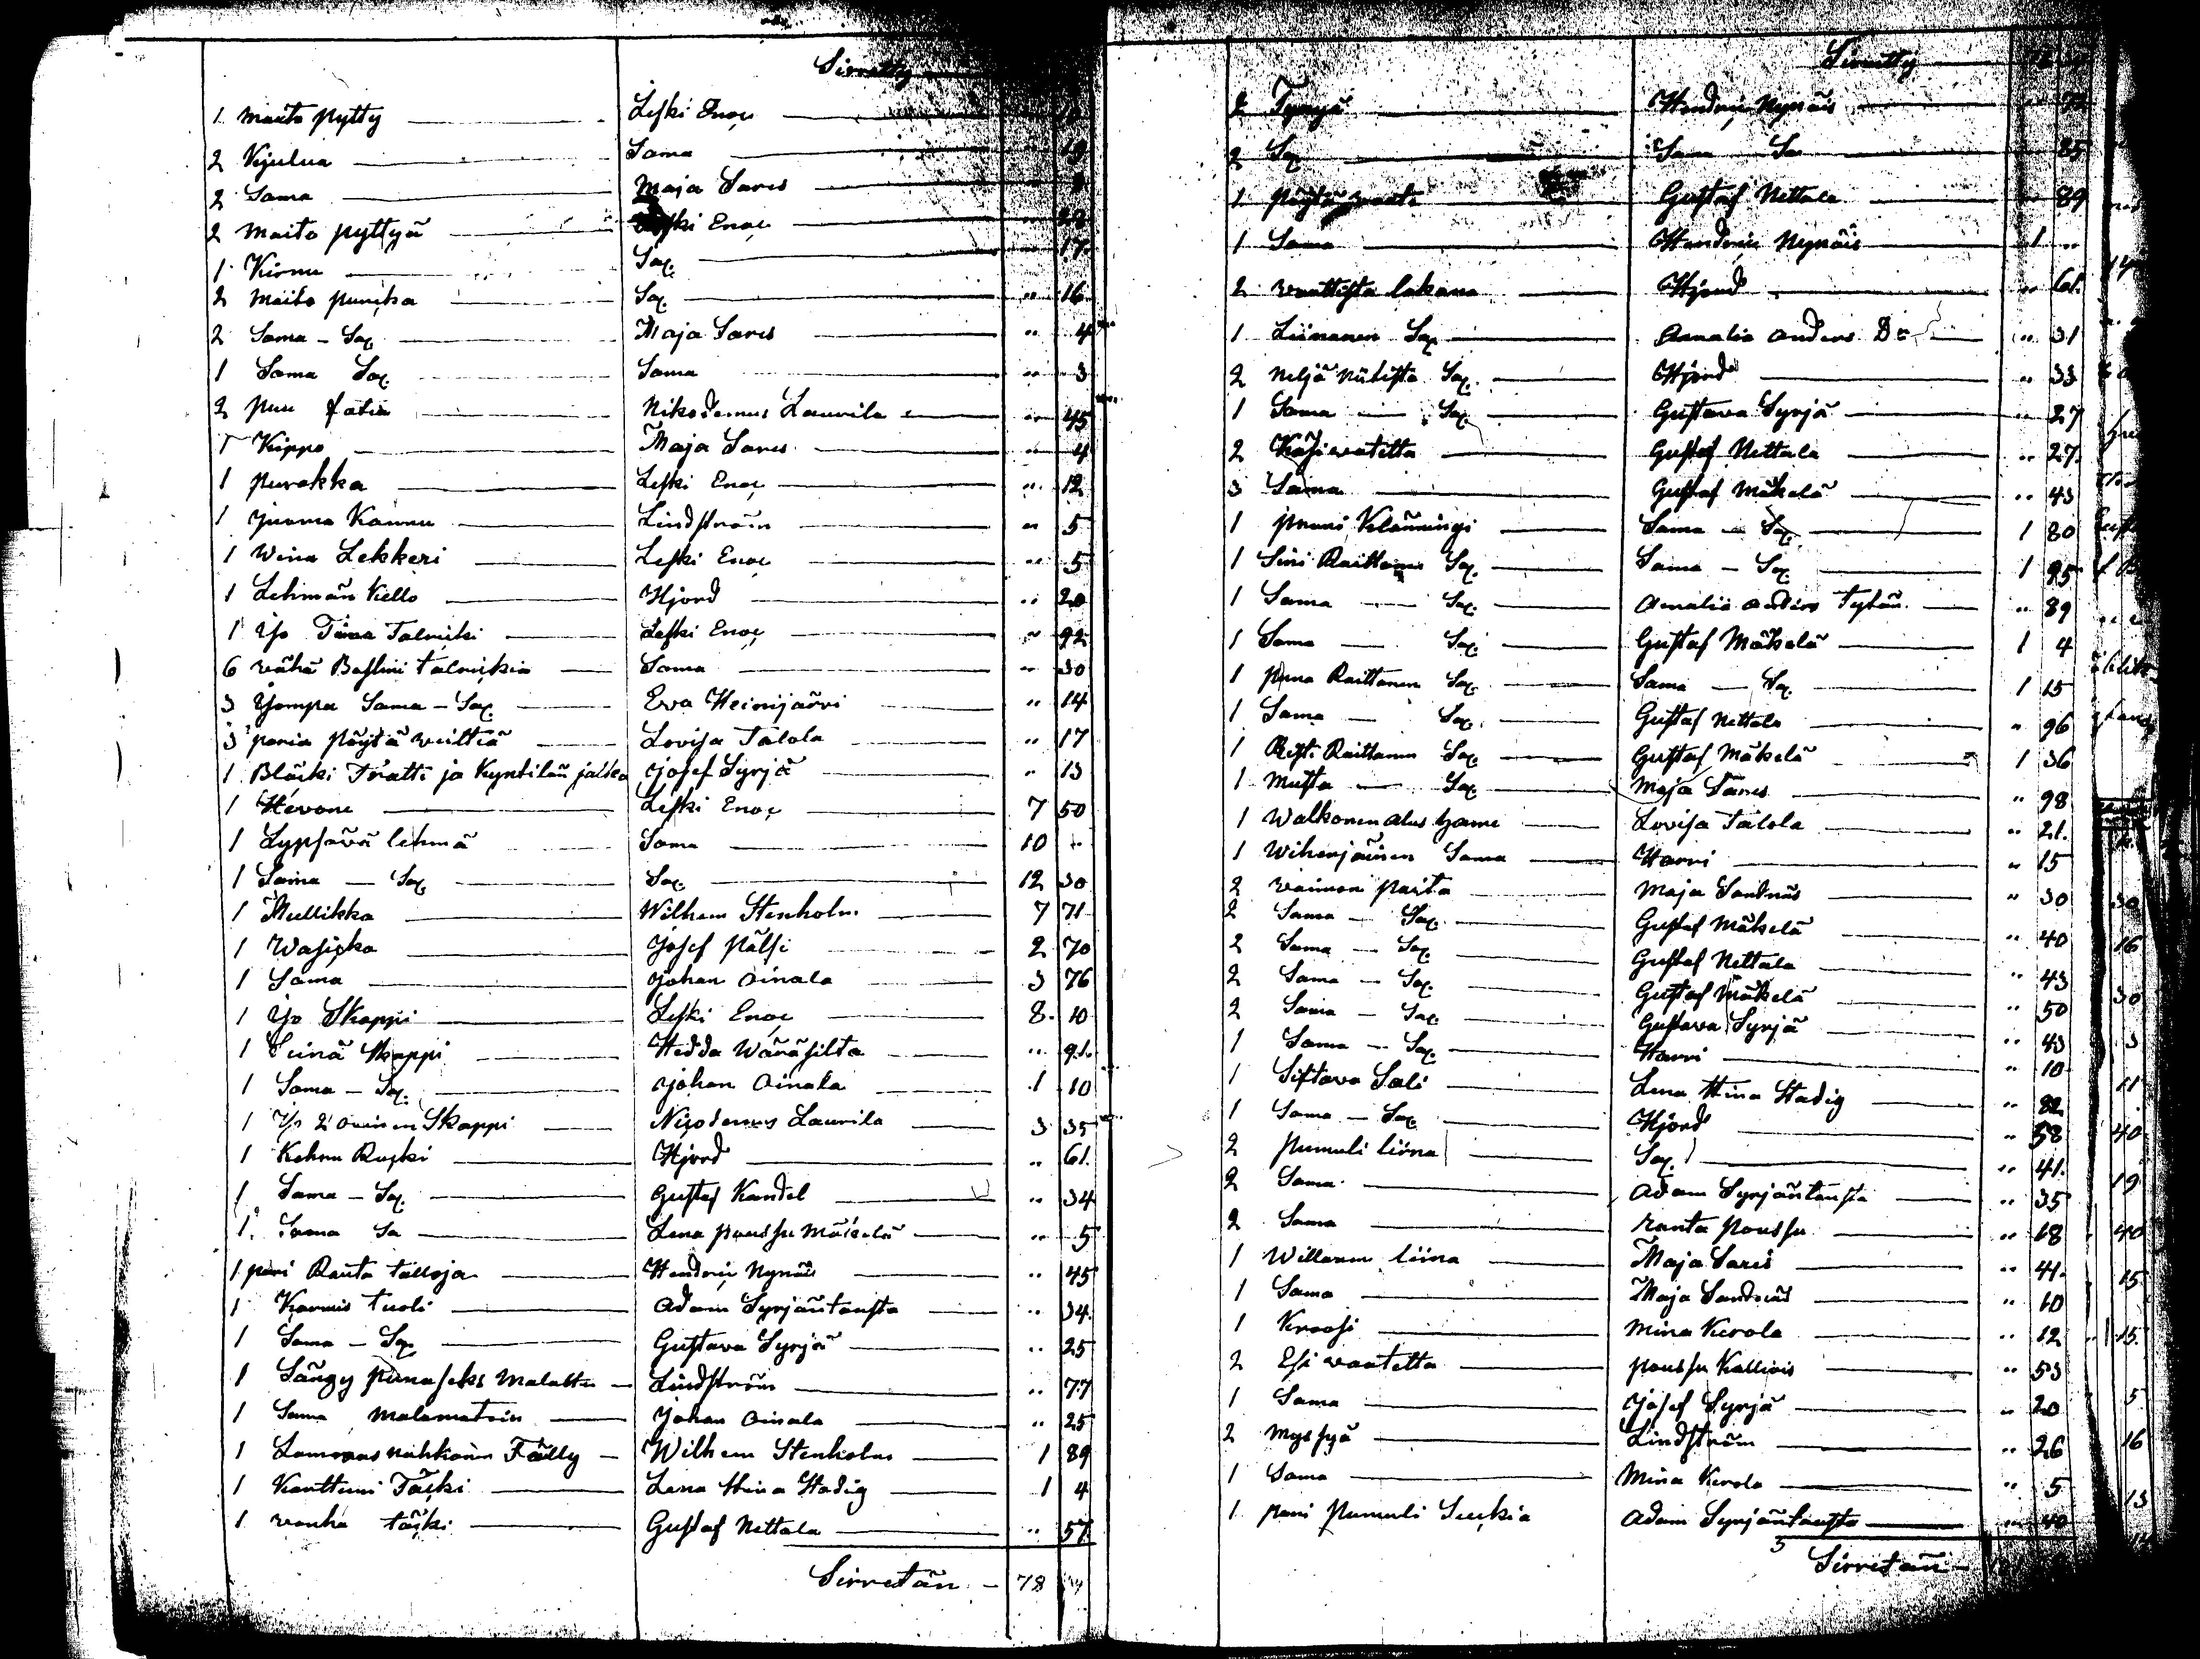 Sirretty
1 maito pytty Leski Enoc 10
2 Kjulua Sama 19
2 Sama Maja Sares
2 maito pyttyä Leski Enoc
1 Kirnu So. 17.
2 maito punkka So. " 16
2 Sama - So. Maja Sares " 4
1 Sama So. Sama " 3
2 puu fatia Nikodemus Laurila " 45
1 Kippo Maja Sares " 4
1 purakka Leski Enoc " 12
1 juoma Kannu Lindström " 5
1 Wina Lekkeri Leski Enoc " 5
1 Lehmän Kello Hjord " 20
1 Iso Tina Talriki Leski Enoc " 92
6 vähä Poslini talrikia Sama " 30
3 Sama - So. Eva Heinijärvi " 14
3 paria pöytä veittiä Lovisa Talola " 17
1 Bläcki Tratti ja Kyntilän jalka Josef Syrjä " 13
1 Hevone Leski Enoc 7 50
1 Lypsävä lehmä Sama 10 "
1 Sama - So. So. 12 30
1 Mullikka Wilhem Stenholm 7 71
1 Wasicka Josef Pälsi 2 70
1 Sama Johan Oinala 3 76
1 Iso Skappi Leski Enoc 8. 10
1 Seinä Skappi Hedda Wäräsilta " 91.
1 Sama - So. Johan Oinala 1 10
1 2 ovinen Skappi Nicodemus Laurila 3 35
1 Kehnu Rucki Hjord " 61.
1 Sama - So. Gustaf Kandel " 34
1. Sama So Lena poussu Mäkelä " 5
1 pari Rauta talloja Hendric Nynäs " 45
1 Karmis tuoli Adam Syrjäntausta " 34.
1 Sama - So. Gustava Syrjä " 25
1 Sängy punaseks Malattu Lindström " 77
1 Sama Malamatoin Johan Oinala " 25
1 Lamvaas nahkanen Fälly Wilhem Stenholm 1 89
1 Karttuni Täcki Lena Stina Stadig 1 4
1 vanha täcki Gustaf Nettala " 57
Sirretän - 78
Sirretty
2 Tynyä Hendric Nynäs
2 So. Sama So 25
1 Pöytä vaate Gustaf Nettala 89
1 Sama Hendric Nynäs 1 "
2 vaattista lakana Hjord " 61.
1 Liinanen So. Amalia Anders Dr " 31
2 neljä niitistä So. Hjord " 33
1 Sama So. Gustava Syrjä " 27
2 Käsivatetta Gustaf Nettala " 27.
3 Sama Gustaf Mäkelä " 43
1 pruuni Kläninngi Sama - So. 1 80
1 Sini Raittanen So. Sama - So. 1 95
1 Sama So. Amalia Anders Tytön " 89
1 Sama So. Gustaf Mäkelä 1 4
1 puna Raittanen So. Sama - So. 1 15
1 Sama So. Gustaf Nettala " 96
1 Risti Raittanen So. Gustaf Mäkelä 1 36
1 Musta So. Maja Sares " 98
1 Walkonen alus hame Lovisa Talola " 21.
1 Wiherjäinen Sama Harri " 15
2 vaimon paita Maja Sandnäs " 30
2 Sama - So. Gustaf Mäkelä " 40
2 Sama - So. Gustaf Nettala " 43
2 Sama - So. Gustaf Mäkelä " 50
2 Sama - So. Gustava Syrjä " 43
1 Sama - So. Harri " 10
1 Siftava Sali Lena Stina Stadig " 82
1 Sama - So. Hjord " 58
2 Pumuli liina So. " 41.
2 Sama Adam Syrjäntausta " 35
2 Sama Ranta poussu " 18
1 Willanen liina Maja Sares " 41.
1 Sama Maja Sandnäs " 10
1 Kroosi Mina Kerola " 12
2 Esi vaatetta poussu Kallions " 53
1 Sama Josef Syrjä " 20
2 Myssyä Lindström " 26
1 Sama Mina Kerola " 5
1 pari Pumuli Suckia Adam Syrjäntausta " 40
Sirretän -